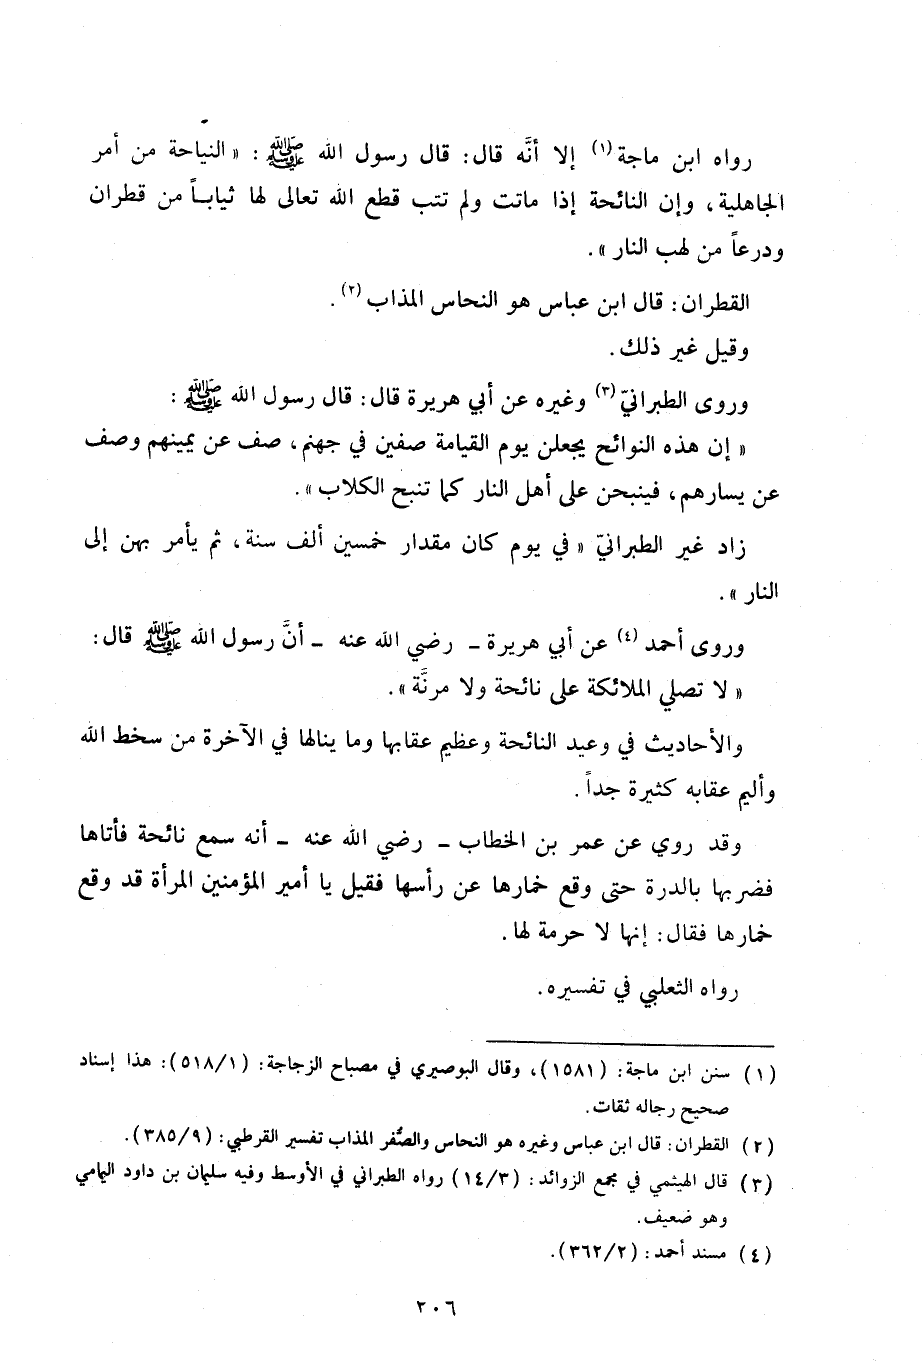 رواه ابن ماجة (١) إلا أنَّه قال: قال رسول الله ﷺ : « النياحة من أمر
الجاهلية، وإن النائحة إذا ماتت ولم تتب قطع الله تعالى لها ثياباً من قطران
ودرعاً من لهب النار ».
القطران: قال ابن عباس هو النحاس المذاب (٢).
وقيل غير ذلك.
وروى الطبرانيّ (٣) وغيره عن أبي هريرة قال: قال رسول الله ﷺ :
« إن هذه النوائح يجعلن يوم القيامة صفين في جهنم، صف عن يمينهم وصف
عن يسارهم، فينبحن على أهل النار كما تنبح الكلاب ».
زاد غير الطبرانيّ « في يوم كان مقدار خمسين ألف سنة، ثم يأمر بهن إلى
النار ».
وروى أحمد (٤) عن أبي هريرة - رضي الله عنه - أنَّ رسول الله ﷺ قال:
« لا تصلي الملائكة على نائحة ولا مرنَّة ».
والأحاديث في وعيد النائحة وعظيم عقابها وما ينالها في الآخرة من سخط الله
وأليم عقابه كثيرة جداً.
وقد روي عن عمر بن الخطاب - رضي الله عنه - أنه سمع نائحة فأتاها
فضربها بالدرة حتى وقع خمارها عن رأسها فقيل يا أمير المؤمنين المرأة قد وقع
خمارها فقال: إنها لا حرمة لها.
رواه الثعلبي في تفسيره.
(١) سنن ابن ماجة: (١٥٨١)، وقال البوصيري في مصباح الزجاجة: (٥١٨/١): هذا إسناد
صحيح رجاله ثقات.
(٢) القطران: قال ابن عباس وغيره هو النحاس والصُّفر المذاب تفسير القرطبي: (٣٨٥/٩).
(٣) قال الهيثمي في مجمع الزوائد: (١٤/٣) رواه الطبراني في الأوسط وفيه سليمان بن داود اليمامي
وهو ضعيف.
(٤) مسند أحمد: (٣٦٢/٢).
٢٠٦